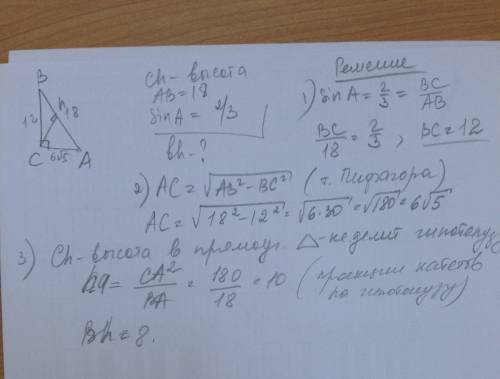 Решение
Ch - высота
AB = 18
sin A = 2/3
Bh - ?
B
12
h
18
C
6√5
A
1) sin A = 2/3 = BC/AB
BC/18 = 2/3, BC = 12
2) AC = √(AB² - BC²) (т. Пифагора)
AC = √(18² - 12²) = √(6·30) = √180 = 6√5
3) Ch - высота в прямоуг. △ - не делит гипотенузу
hA = CA²/BA = 180/18 = 10 (проекции катетов
на гипотенузу)
Bh = 8.